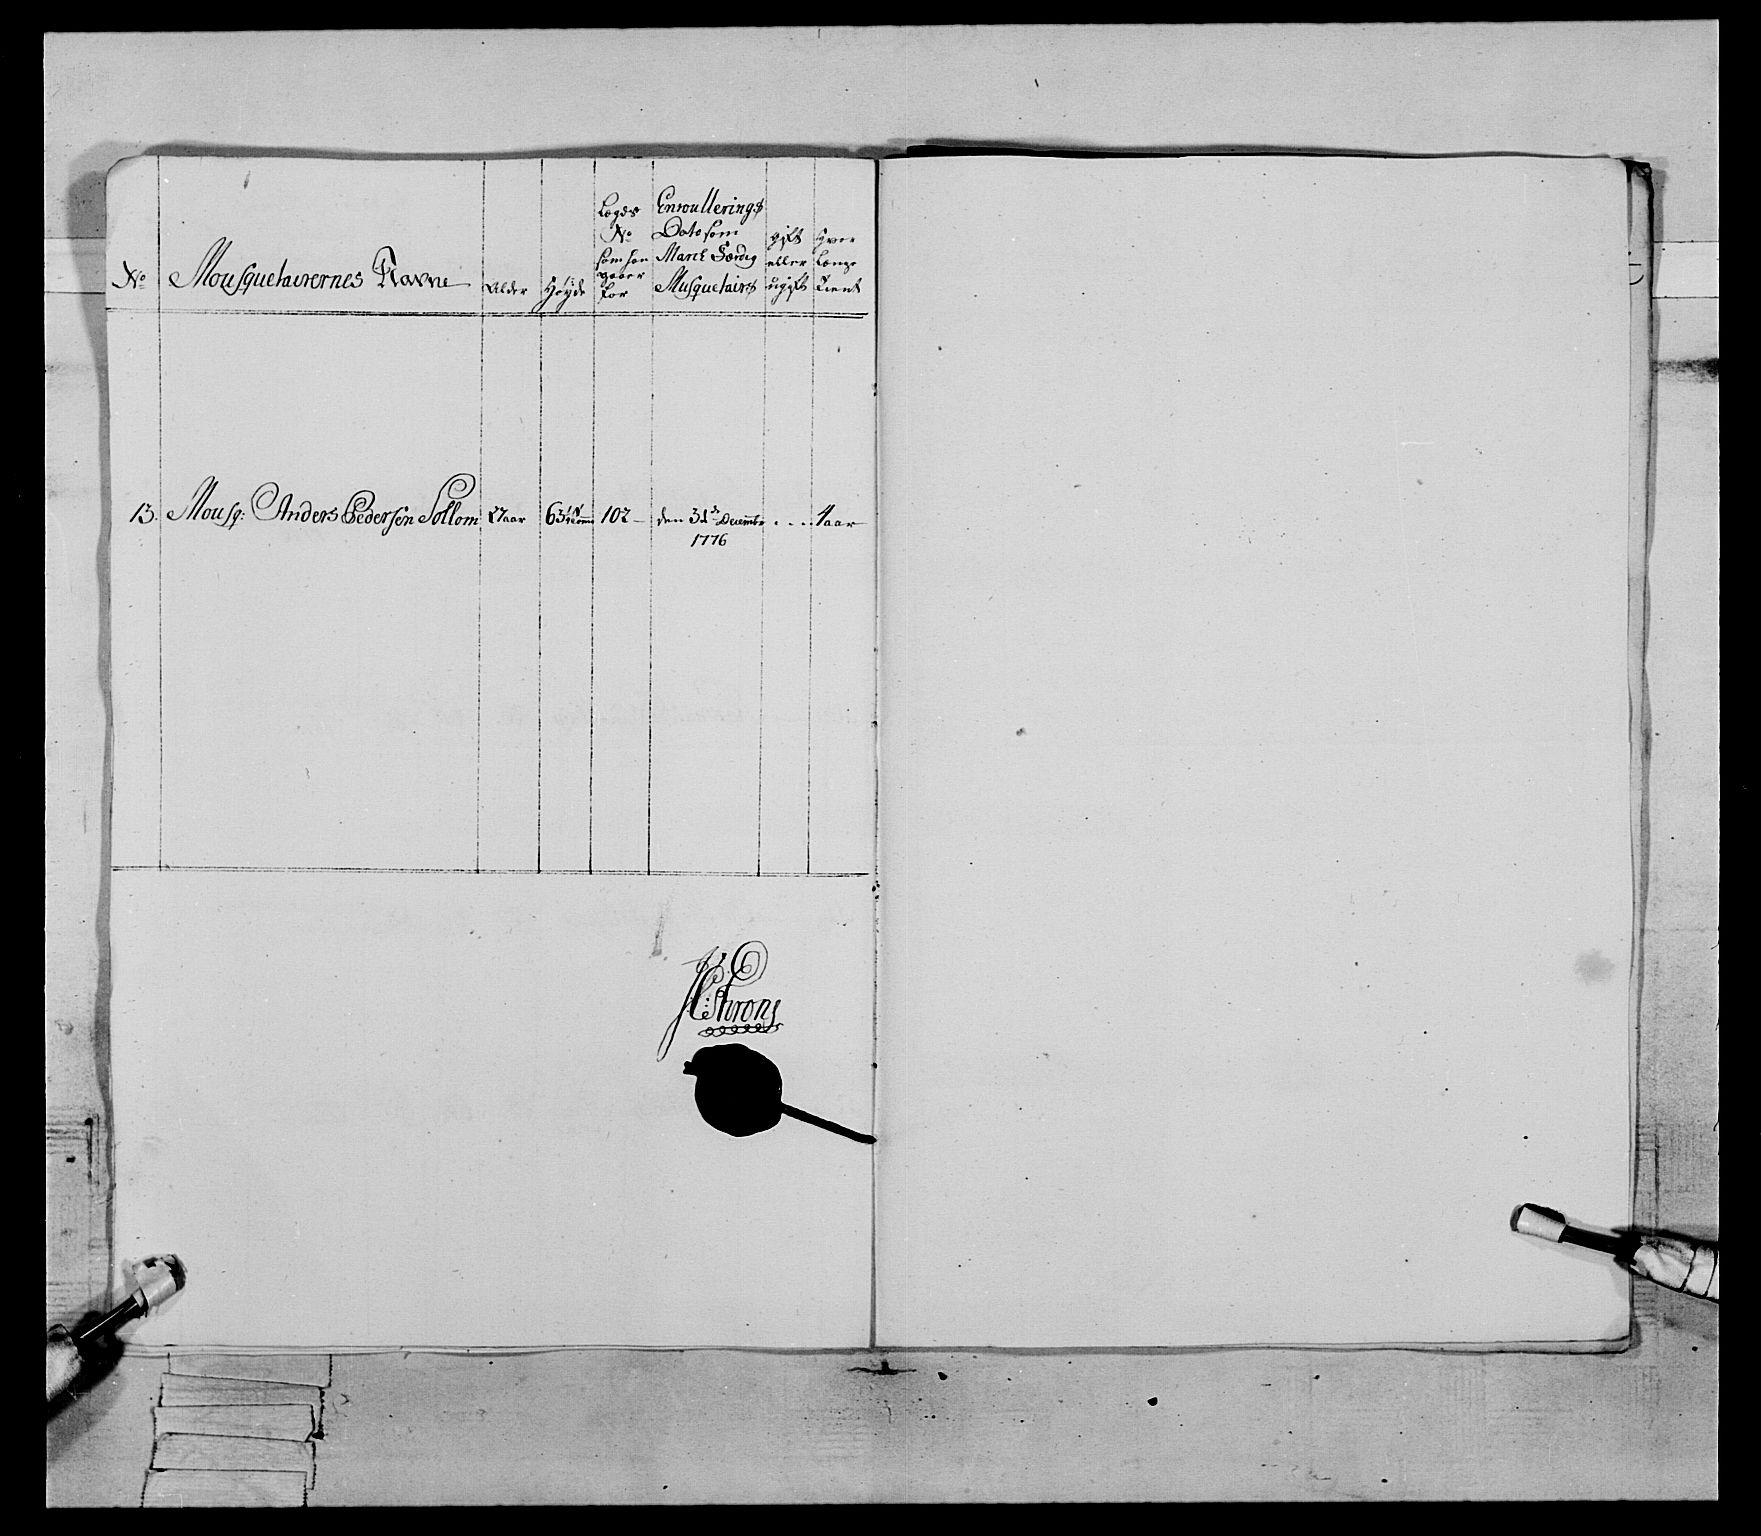 No
Mousquetairernes Navne
Alder
Høyde
Lægds
No
som han
gaaer
for
Enroullerings
Dato som
March Færdig
Musquetairs
gift
eller
ugift
Hvor
Længe
Tient
13. Mousq: Anders Pedersen Sollom 27 aar 63 102 – den 31 Decembr . . . . 4 aar
1776